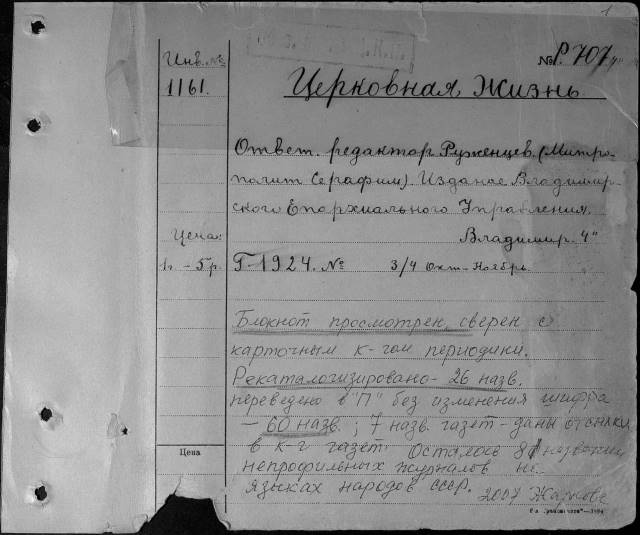 1
Инв. №
1161.
№ Р. 707
Церковная Жизнь
Ответ. редактор Руженцев. (Митро-
полит Серафим). Издание Владимир-
ского Епархиального Управления.
Владимир. 4°
Цена:
1г. - 5р.
Г-1924. № 3/4 Окт-Ноябрь.
Блокнот просмотрен, сверен с
карточным к-гом периодики.
Рекаталогизировано - 26 назв.
переведено в "П" без изменения шифра
- 60 назв.; 7 назв. газет - даны отсылки
в к-г газет. Осталось 81 название
непрофильных журналов на
языках народов СССР.
2007
Цена